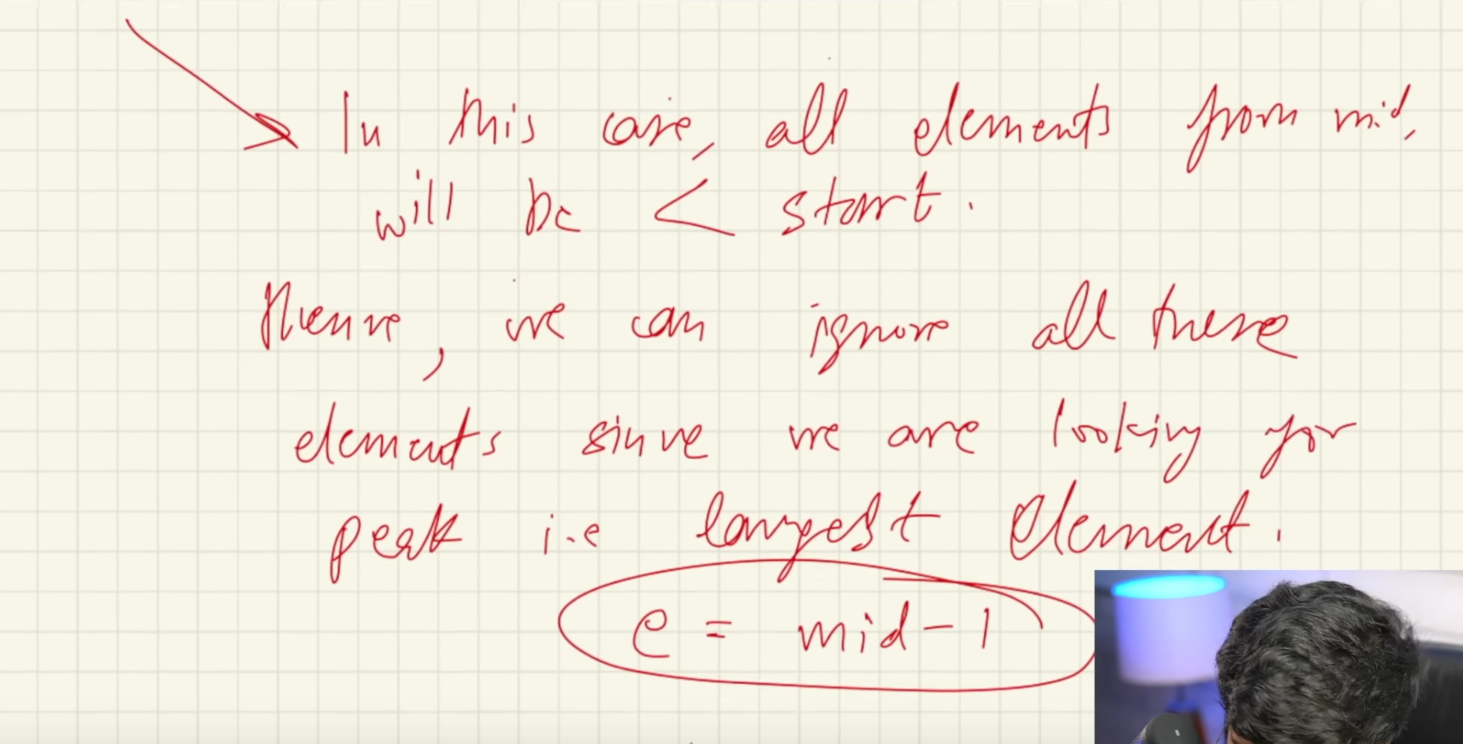 In this case, all elements from mid,
will be < start.
Hence, we can ignore all these
elements since we are looking for
peak i.e largest element.
e = mid-1